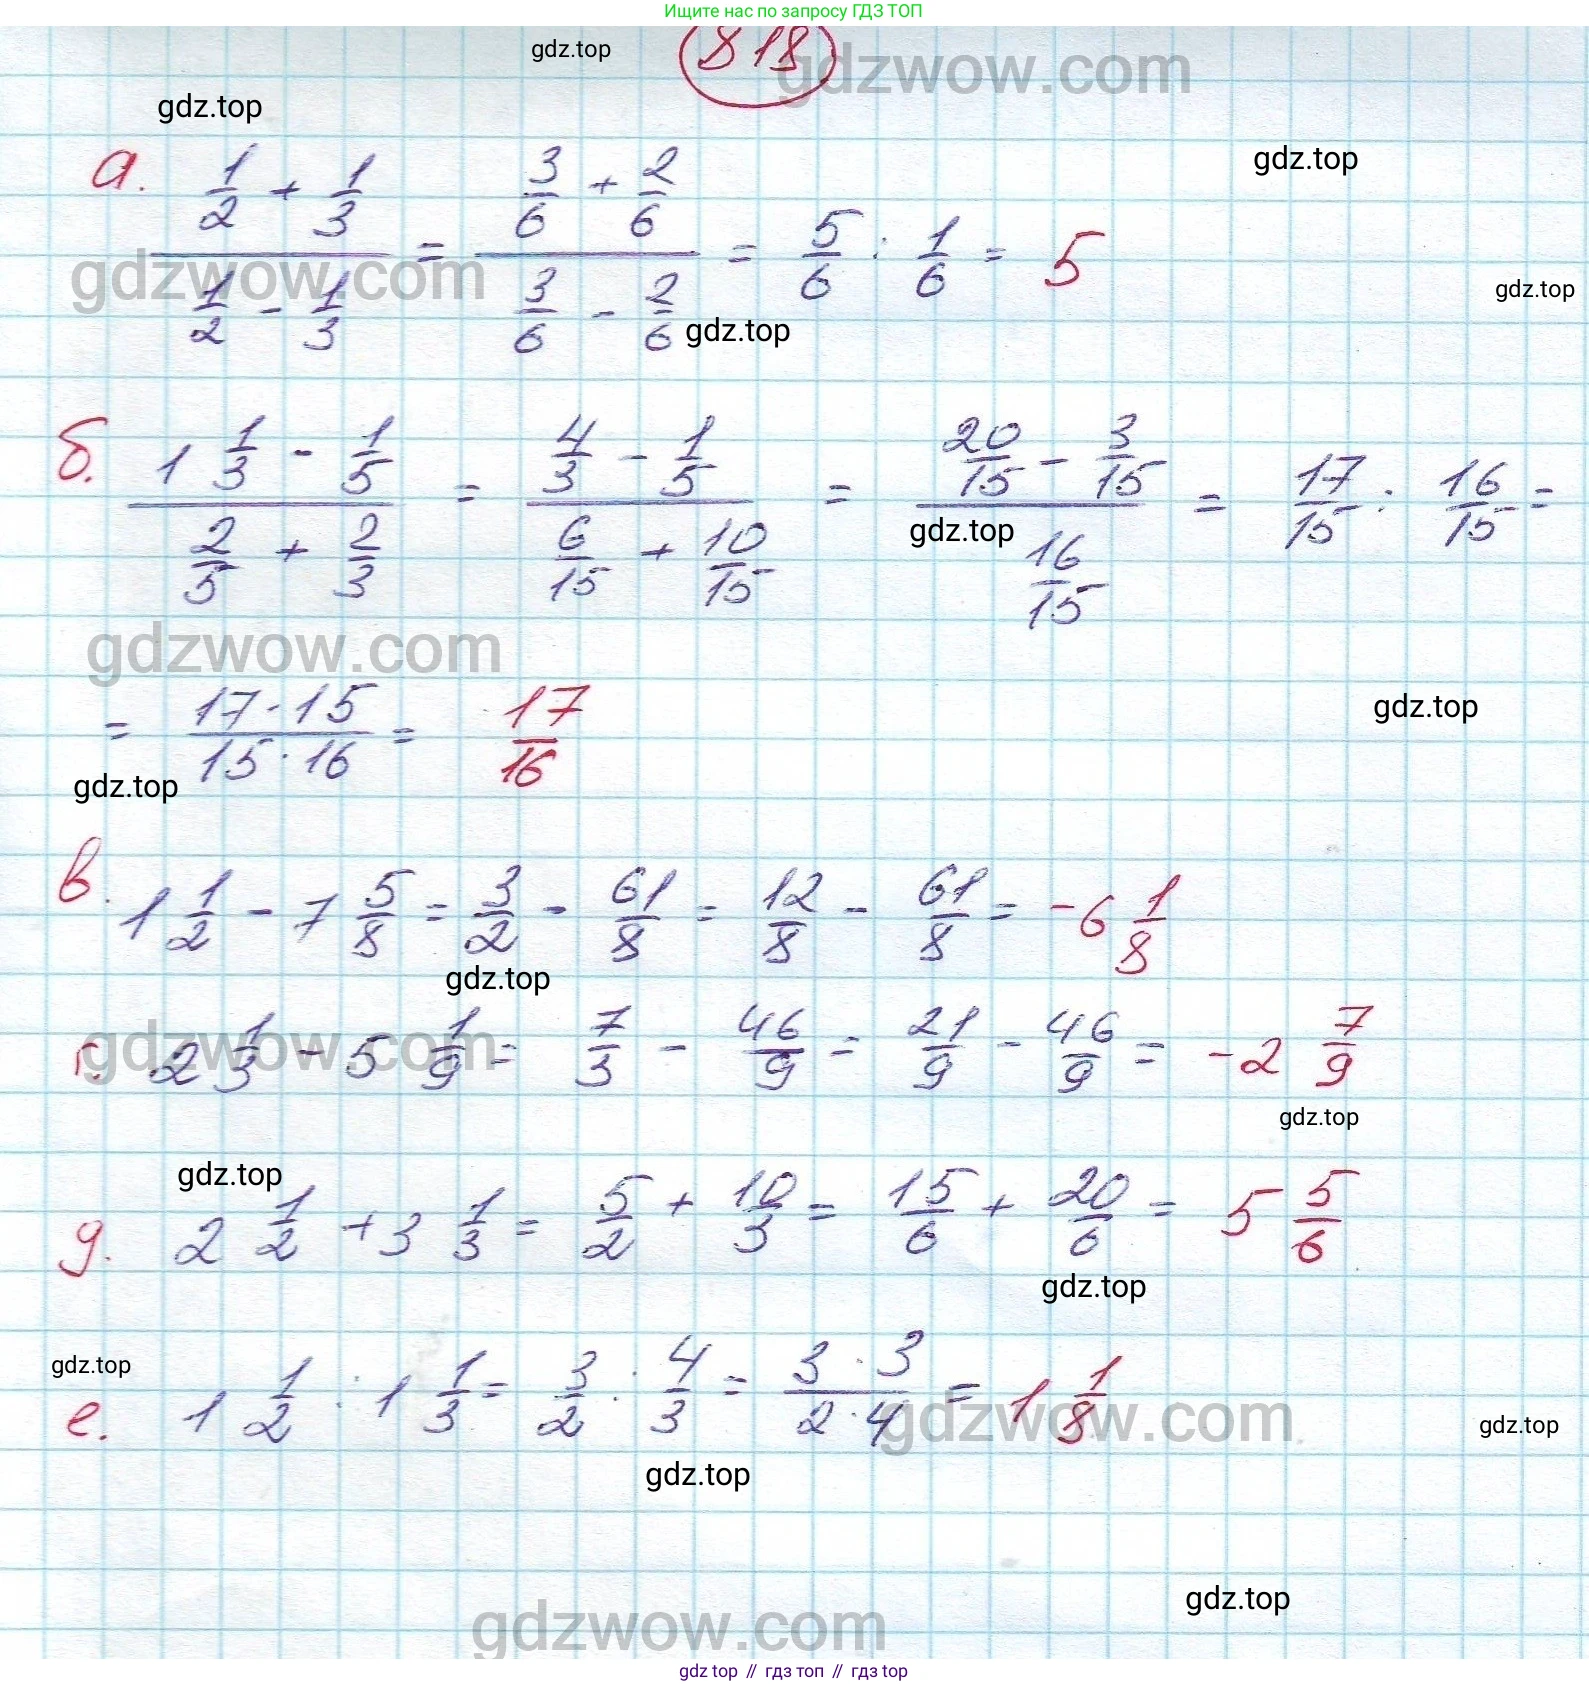 Ищите нас по запросу ГДЗ ТОП
818
gdz.top
gdzwow.com
gdz.top
gdz.top
а. (1/2 + 1/3)/(1/2 - 1/3) = (3/6 + 2/6)/(3/6 - 2/6) = 5/6 : 1/6 = 5
gdzwow.com
gdz.top
gdz.top
б. (1 1/3 - 1/5)/(2/5 + 2/3) = (4/3 - 1/5)/(6/15 + 10/15) = (20/15 - 3/15)/(16/15) = 17/15 : 16/15 =
gdz.top
gdzwow.com
= (17·15)/(15·16) = 17/16
gdz.top
gdz.top
в. 1 1/2 - 7 5/8 = 3/2 - 61/8 = 12/8 - 61/8 = -6 1/8
gdz.top
г. 2 1/3 - 5 1/9 = 7/3 - 46/9 = 21/9 - 46/9 = -2 7/9
gdzwow.com
gdz.top
gdz.top
д. 2 1/2 + 3 1/3 = 5/2 + 10/3 = 15/6 + 20/6 = 5 5/6
gdz.top
gdz.top
е. 1 1/2 : 1 1/3 = 3/2 : 4/3 = (3·3)/(2·4) = 1 1/8
gdzwow.com
gdz.top
gdz.top
gdz.top
gdzwow.com
gdz top // гдз топ // гдз top